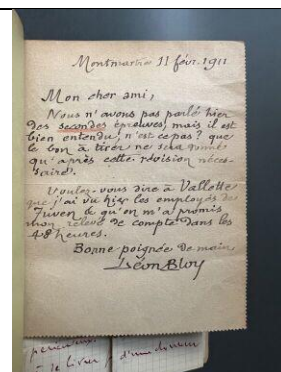 Montmartre 11 févr. 1911
Mon cher ami,
Nous n'avons pas parlé hier
des secondes épreuves, mais il est
bien entendu, n'est-ce pas ? que
le bon à tirer ne sera donné
qu'après cette révision néces-
saire.
Voulez-vous dire à Vallette
que j'ai vu hier les employés de
Juven & qu'on m'a promis
mon relevé de compte dans les
48 heures.
Bonne poignée de main,
Léon Bloy
le livre d'un